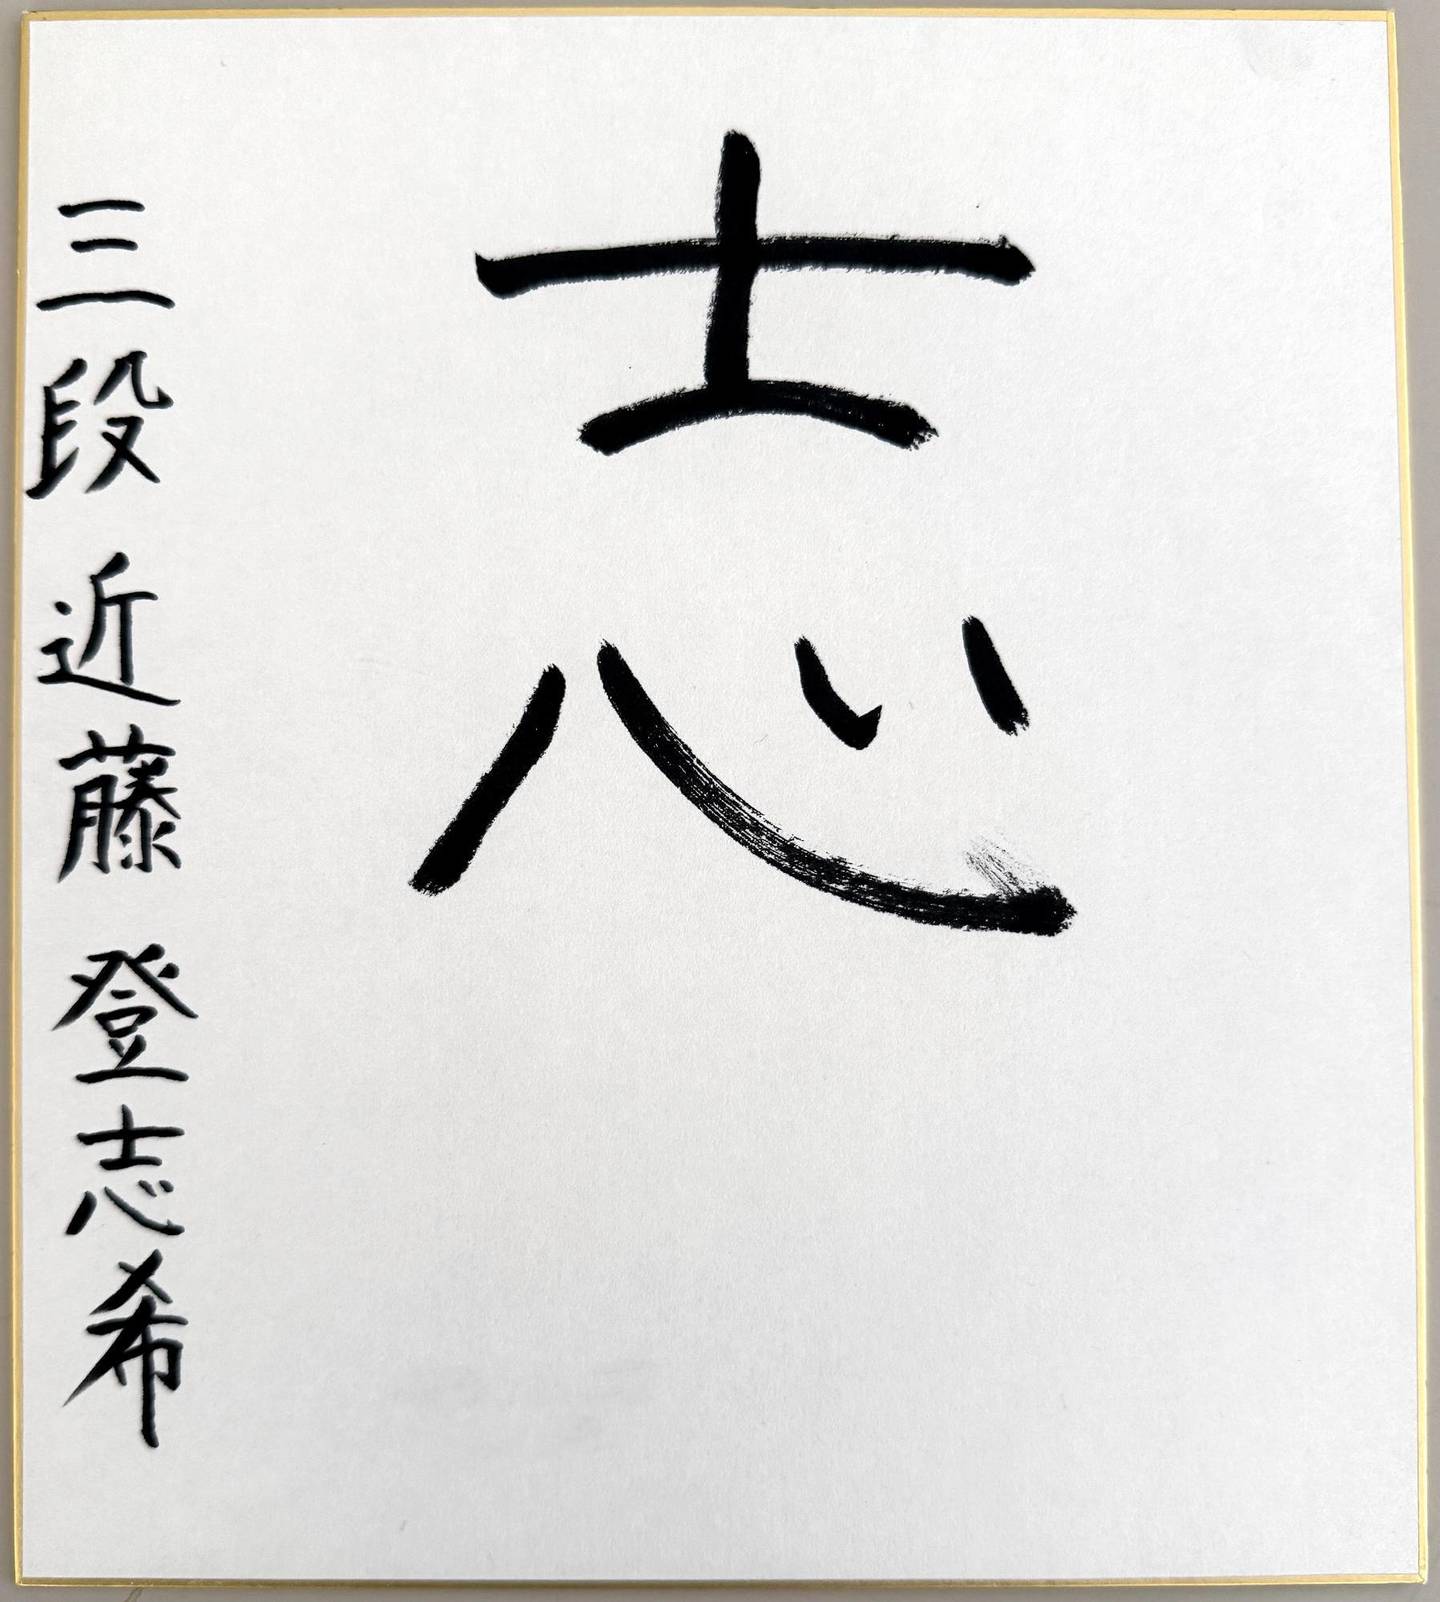 志
三段 近藤 登志希